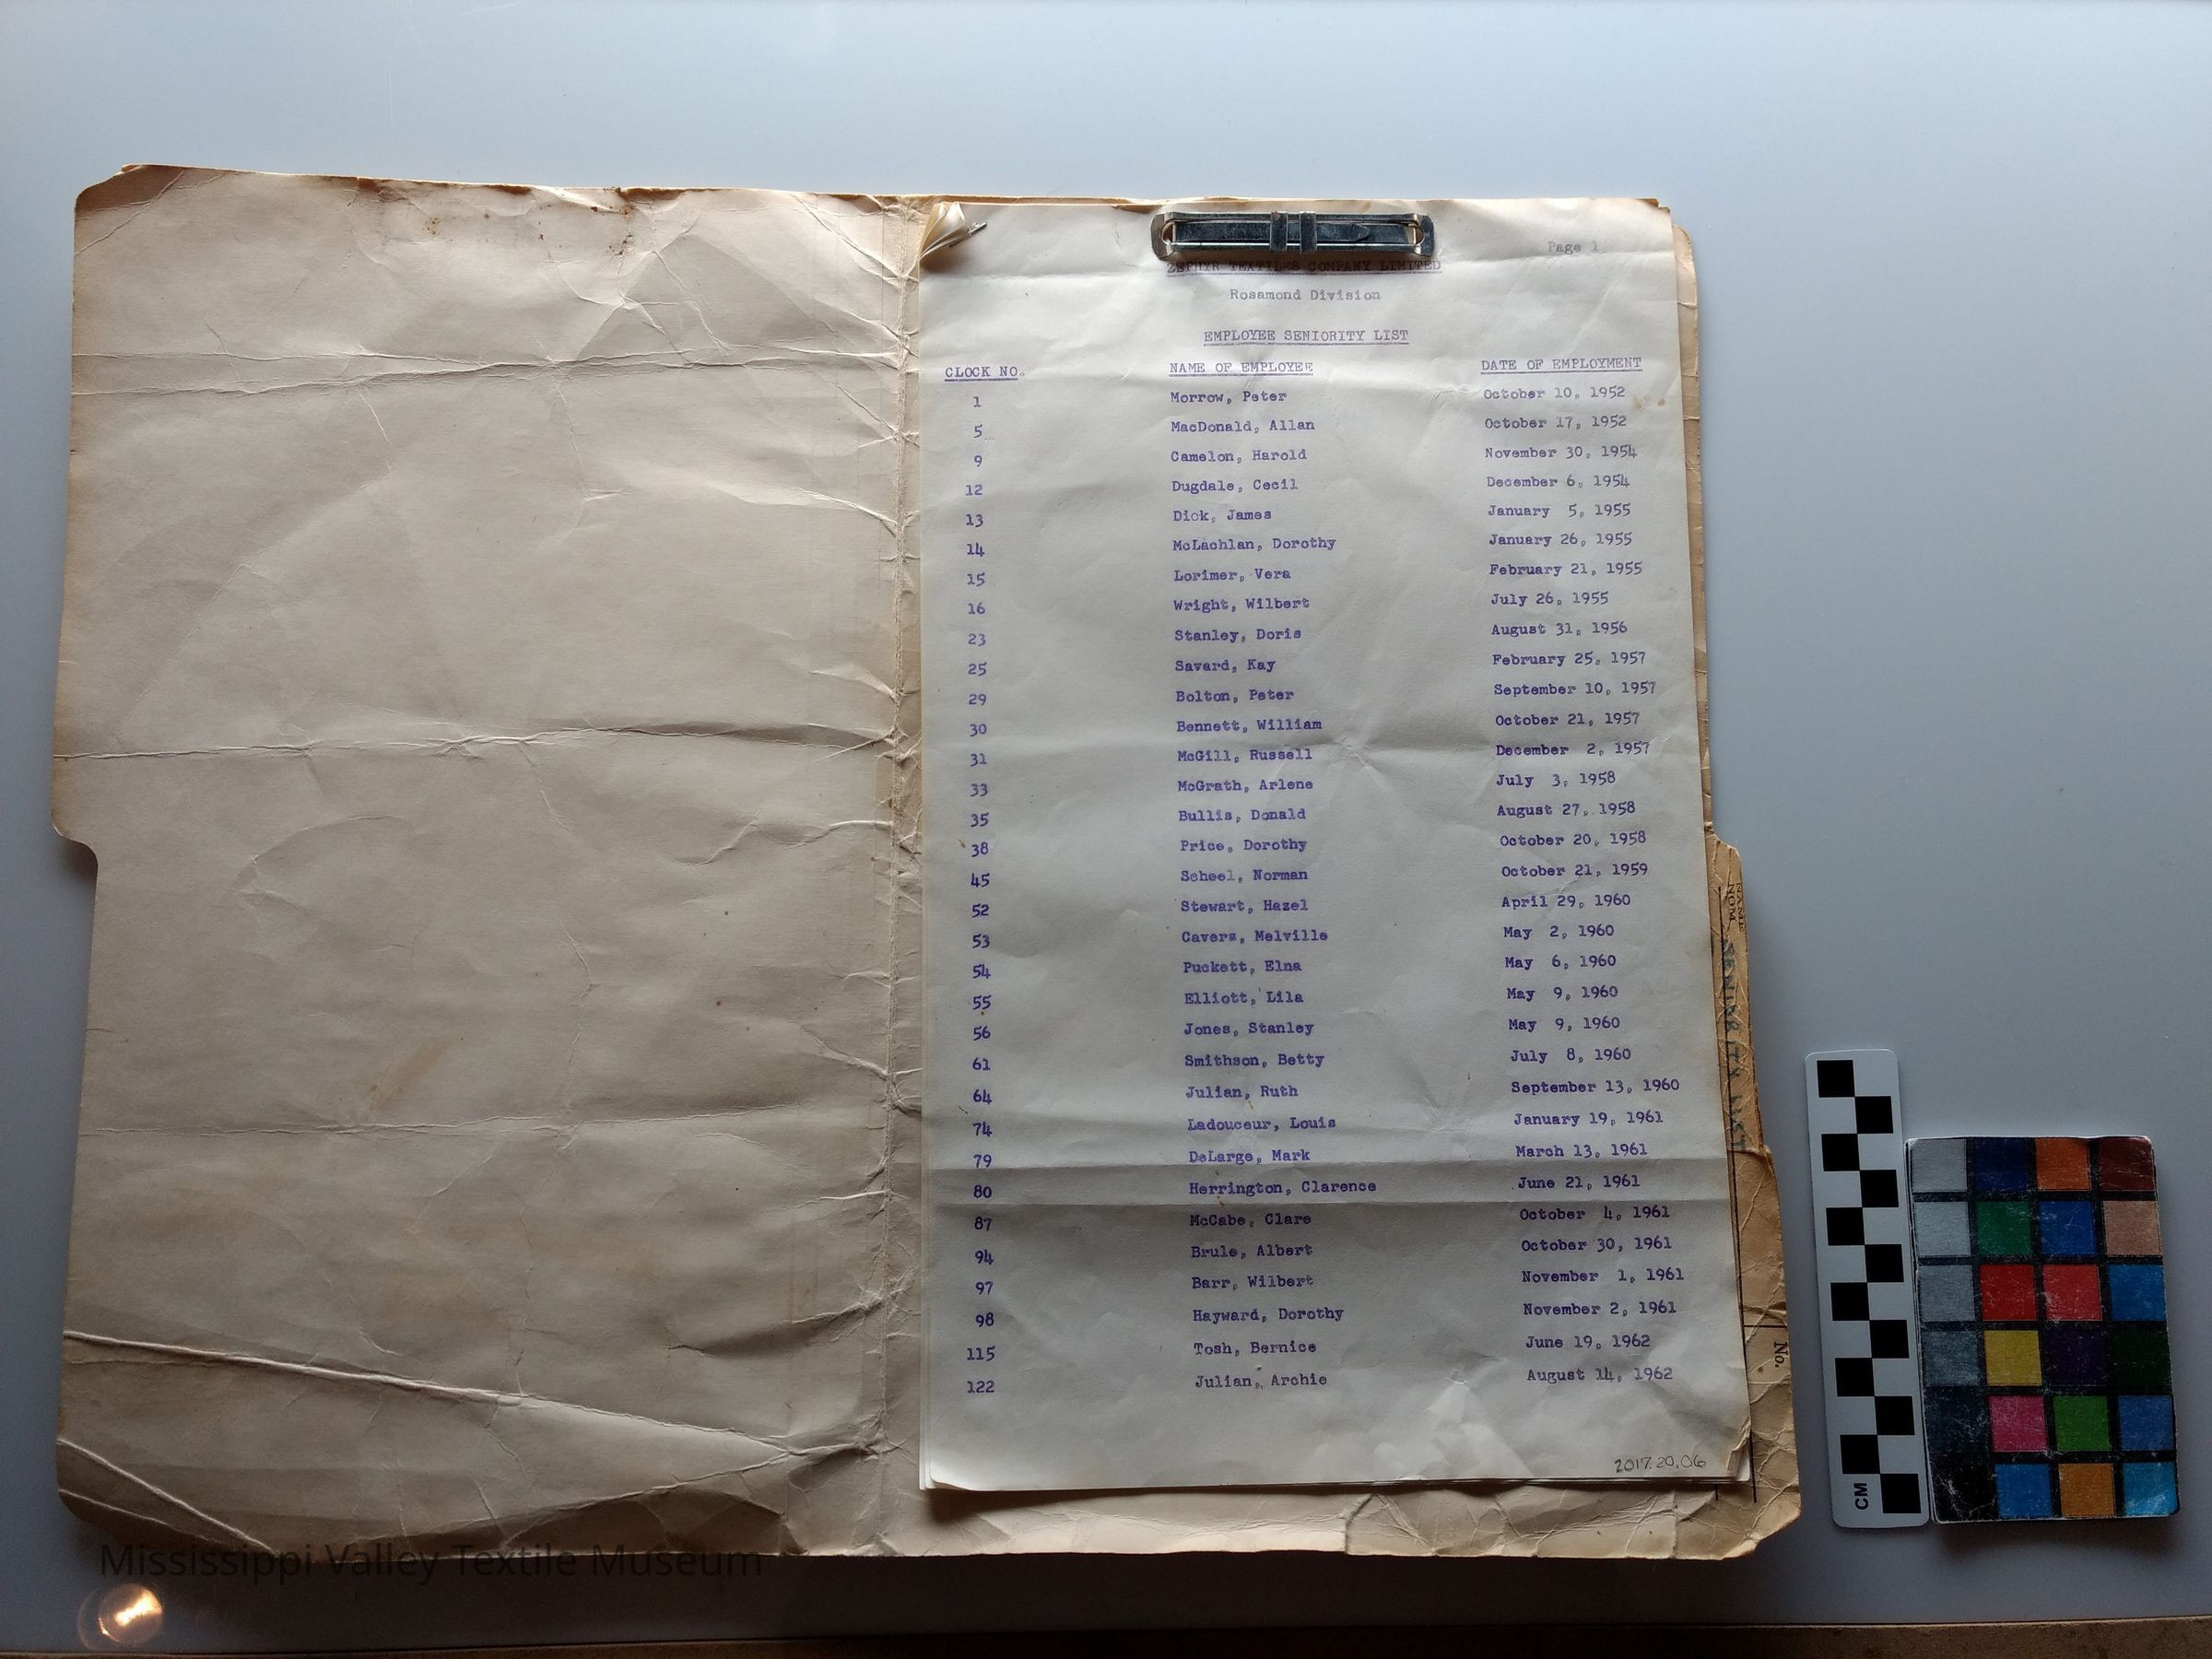 Page 1
ZEPHYR TEXTILES COMPANY LIMITED
Rosamond Division
EMPLOYEE SENIORITY LIST
CLOCK NO. NAME OF EMPLOYEE DATE OF EMPLOYMENT
1 Morrow, Peter October 10, 1952
5 MacDonald, Allan October 17, 1952
9 Camelon, Harold November 30, 1954
12 Dugdale, Cecil December 6, 1954
13 Dick, James January 5, 1955
14 McLachlan, Dorothy January 26, 1955
15 Lorimer, Vera February 21, 1955
16 Wright, Wilbert July 26, 1955
23 Stanley, Doris August 31, 1956
25 Savard, Kay February 25, 1957
29 Bolton, Peter September 10, 1957
30 Bennett, William October 21, 1957
31 McGill, Russell December 2, 1957
33 McGrath, Arlene July 3, 1958
35 Bullis, Donald August 27, 1958
38 Price, Dorothy October 20, 1958
45 Scheel, Norman October 21, 1959
52 Stewart, Hazel April 29, 1960
53 Cavers, Melville May 2, 1960
54 Puckett, Elna May 6, 1960
55 Elliott, Lila May 9, 1960
56 Jones, Stanley May 9, 1960
61 Smithson, Betty July 8, 1960
64 Julian, Ruth September 13, 1960
74 Ladouceur, Louis January 19, 1961
79 DeLarge, Mark March 13, 1961
80 Herrington, Clarence June 21, 1961
87 McCabe, Clare October 4, 1961
94 Brule, Albert October 30, 1961
97 Barr, Wilbert November 1, 1961
98 Hayward, Dorothy November 2, 1961
115 Tosh, Bernice June 19, 1962
122 Julian, Archie August 14, 1962
2017.20.06
NAME
NOM
SENIORITY LIST
No.
CM
Mississippi Valley Textile Museum